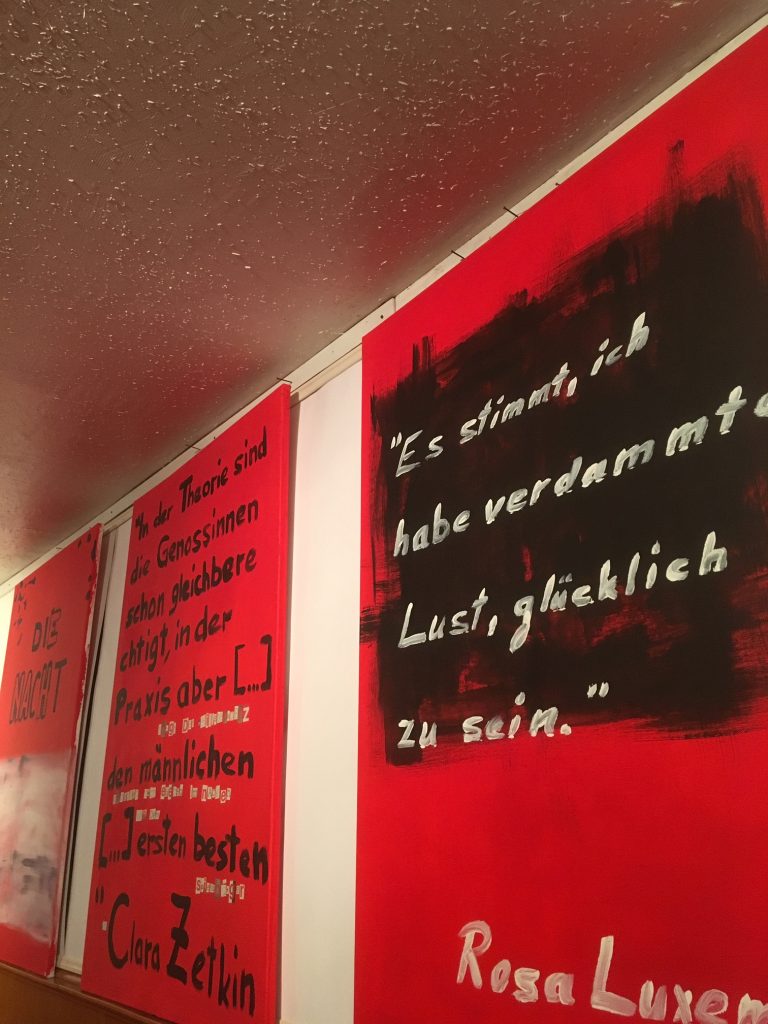 DIE
"In der Theorie sind
die Genossinnen
schon gleichbere
chtigt, in der
Praxis aber [...]
den männlichen
[...] ersten besten
"
Clara Zetkin
"Es stimmt, ich
habe verdammte
Lust, glücklich
zu sein."
Rosa Luxem